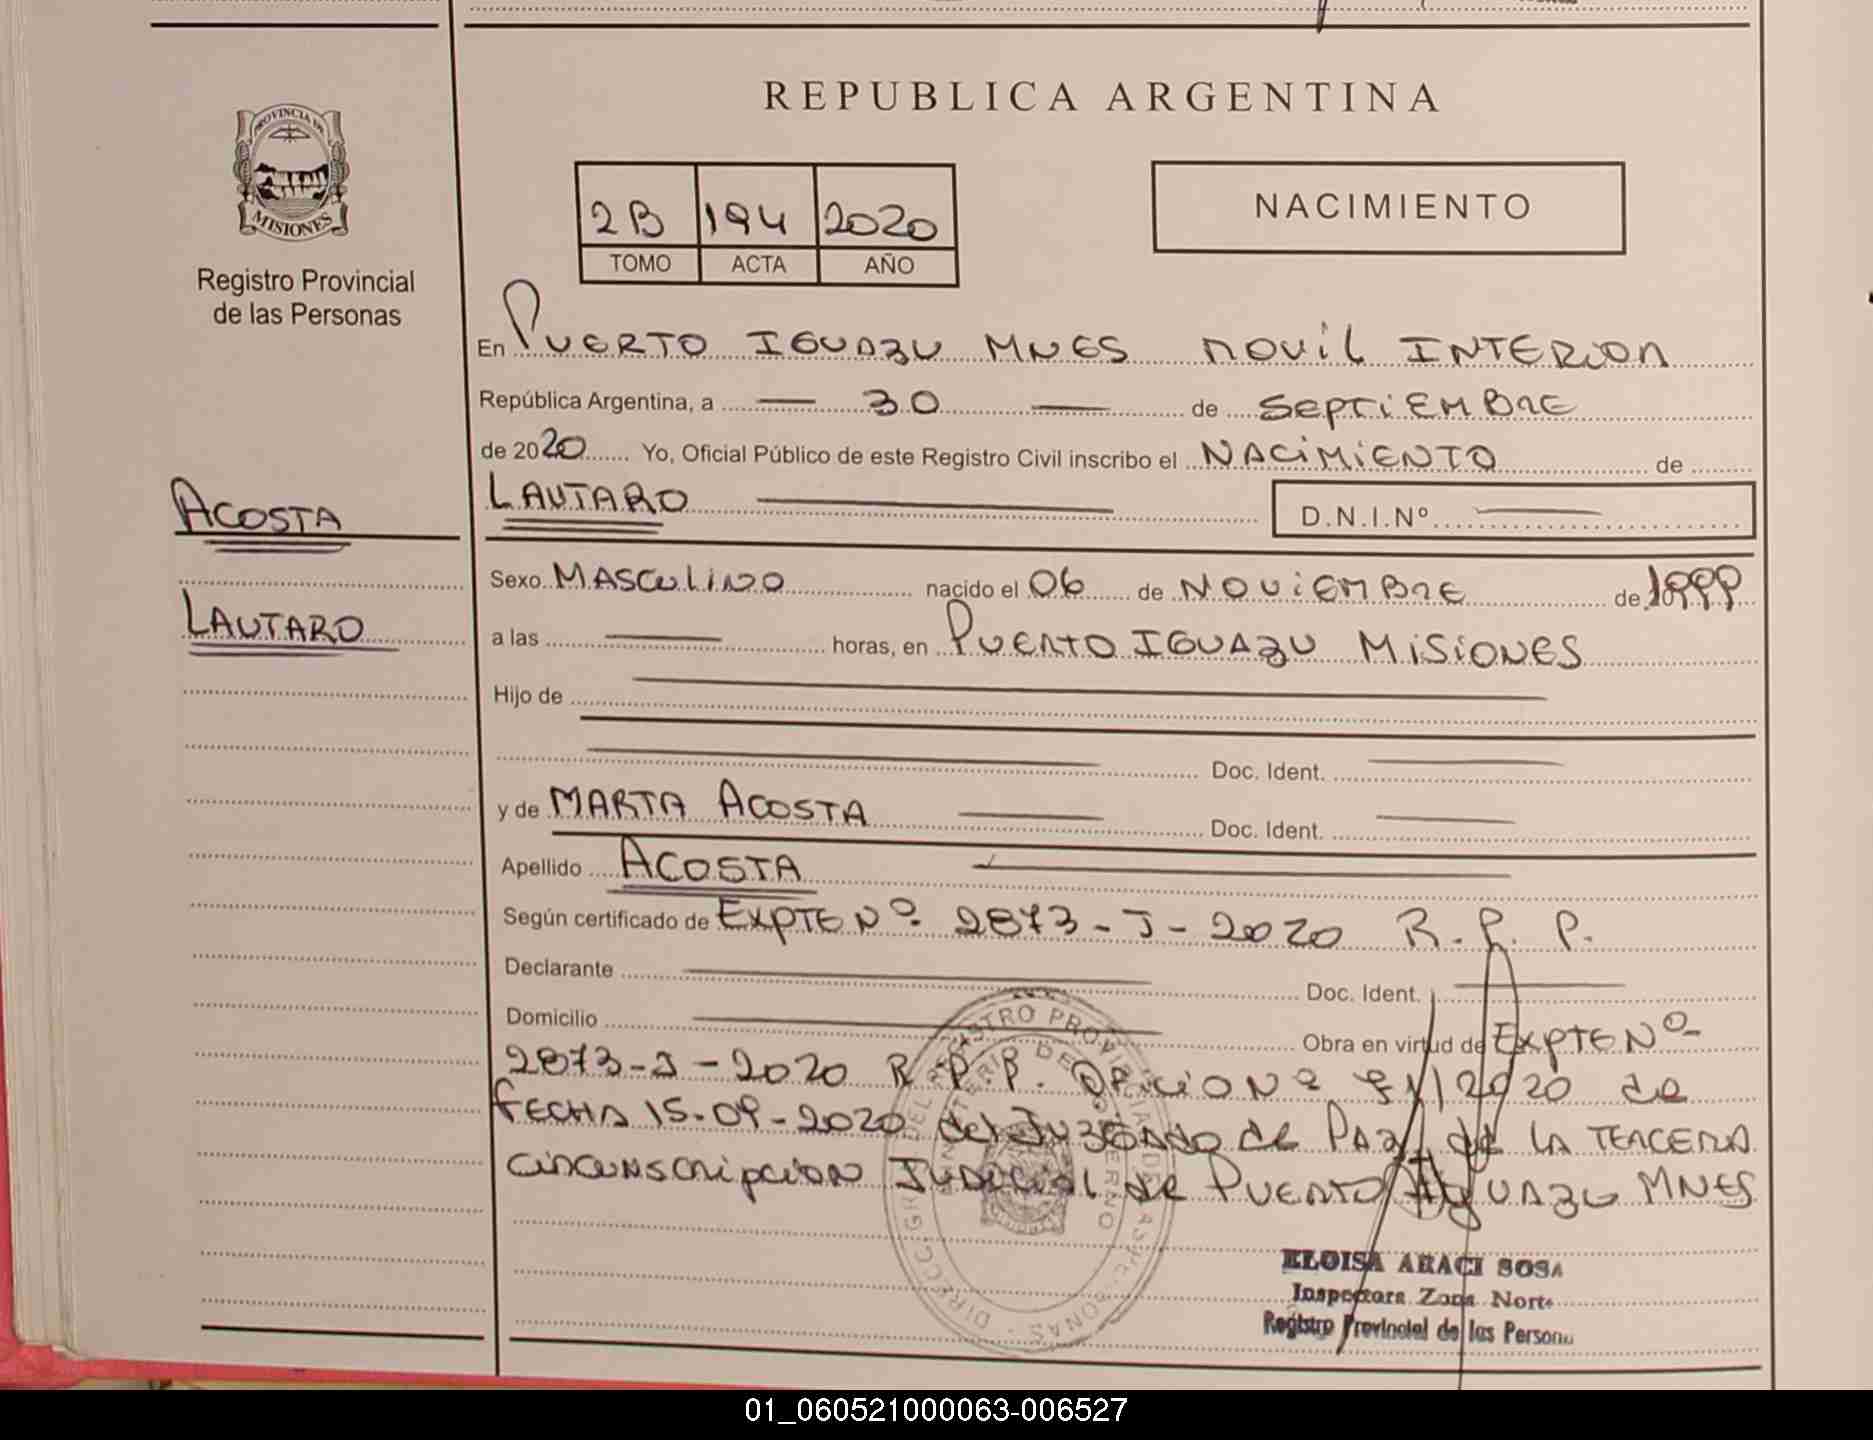 REPUBLICA ARGENTINA
PROVINCIA DE
MISIONES
Registro Provincial
de las Personas
2B 194 2020
TOMO ACTA AÑO
NACIMIENTO
En PUERTO IGUAZU MNES MOVIL INTERIOR
República Argentina, a — 30 — de SEPTIEMBRE
de 2020 Yo, Oficial Público de este Registro Civil inscribo el NACIMIENTO de
LAUTARO — D.N.I.Nº —
ACOSTA
LAUTARO
Sexo MASCULINO nacido el 06 de NOVIEMBRE de 1999
a las — horas, en PUERTO IGUAZU MISIONES
Hijo de —
— Doc. Ident. —
y de MARTA ACOSTA — Doc. Ident. —
Apellido ACOSTA —
Según certificado de EXPTE Nº 2873-J-2020 R.P.P.
Declarante — Doc. Ident. —
Domicilio — Obra en virtud de EXPTE Nº
2873-J-2020 R.P.P. OFICIO Nº /2020 de
FECHA 15-09-2020 del JUZGADO de PAZ de LA TERCERA
CIRCUNSCRIPCION JUDICIAL de PUERTO IGUAZU MNES
ELOISA ARACI SOSA
Inspectora Zona Norte
Registro Provincial de las Persona
01_060521000063-006527